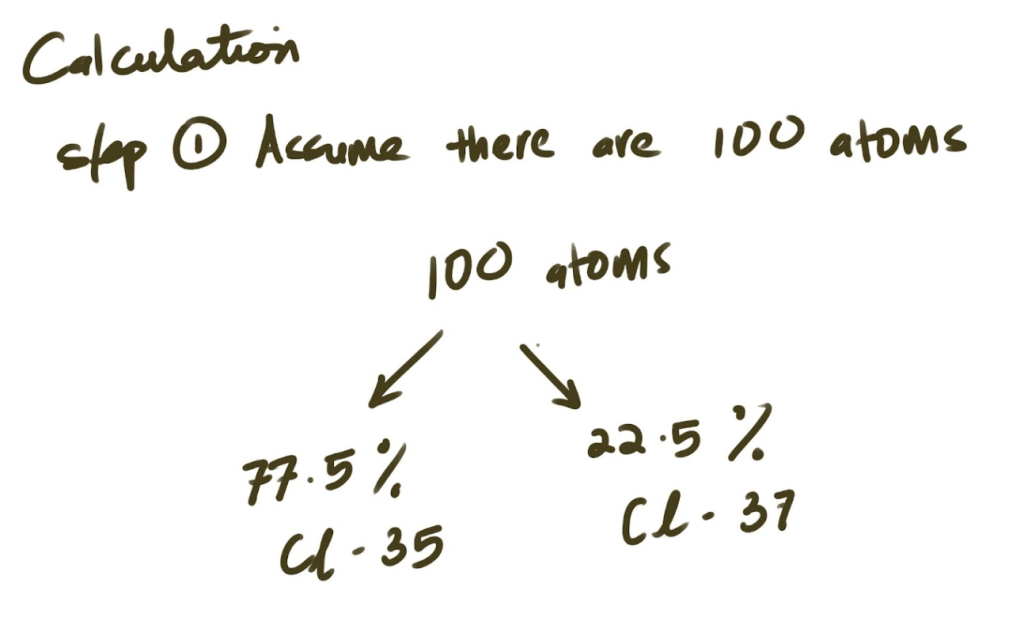 Calculation
step ① Assume there are 100 atoms
100 atoms
77.5% 22.5%
Cl-35 Cl-37